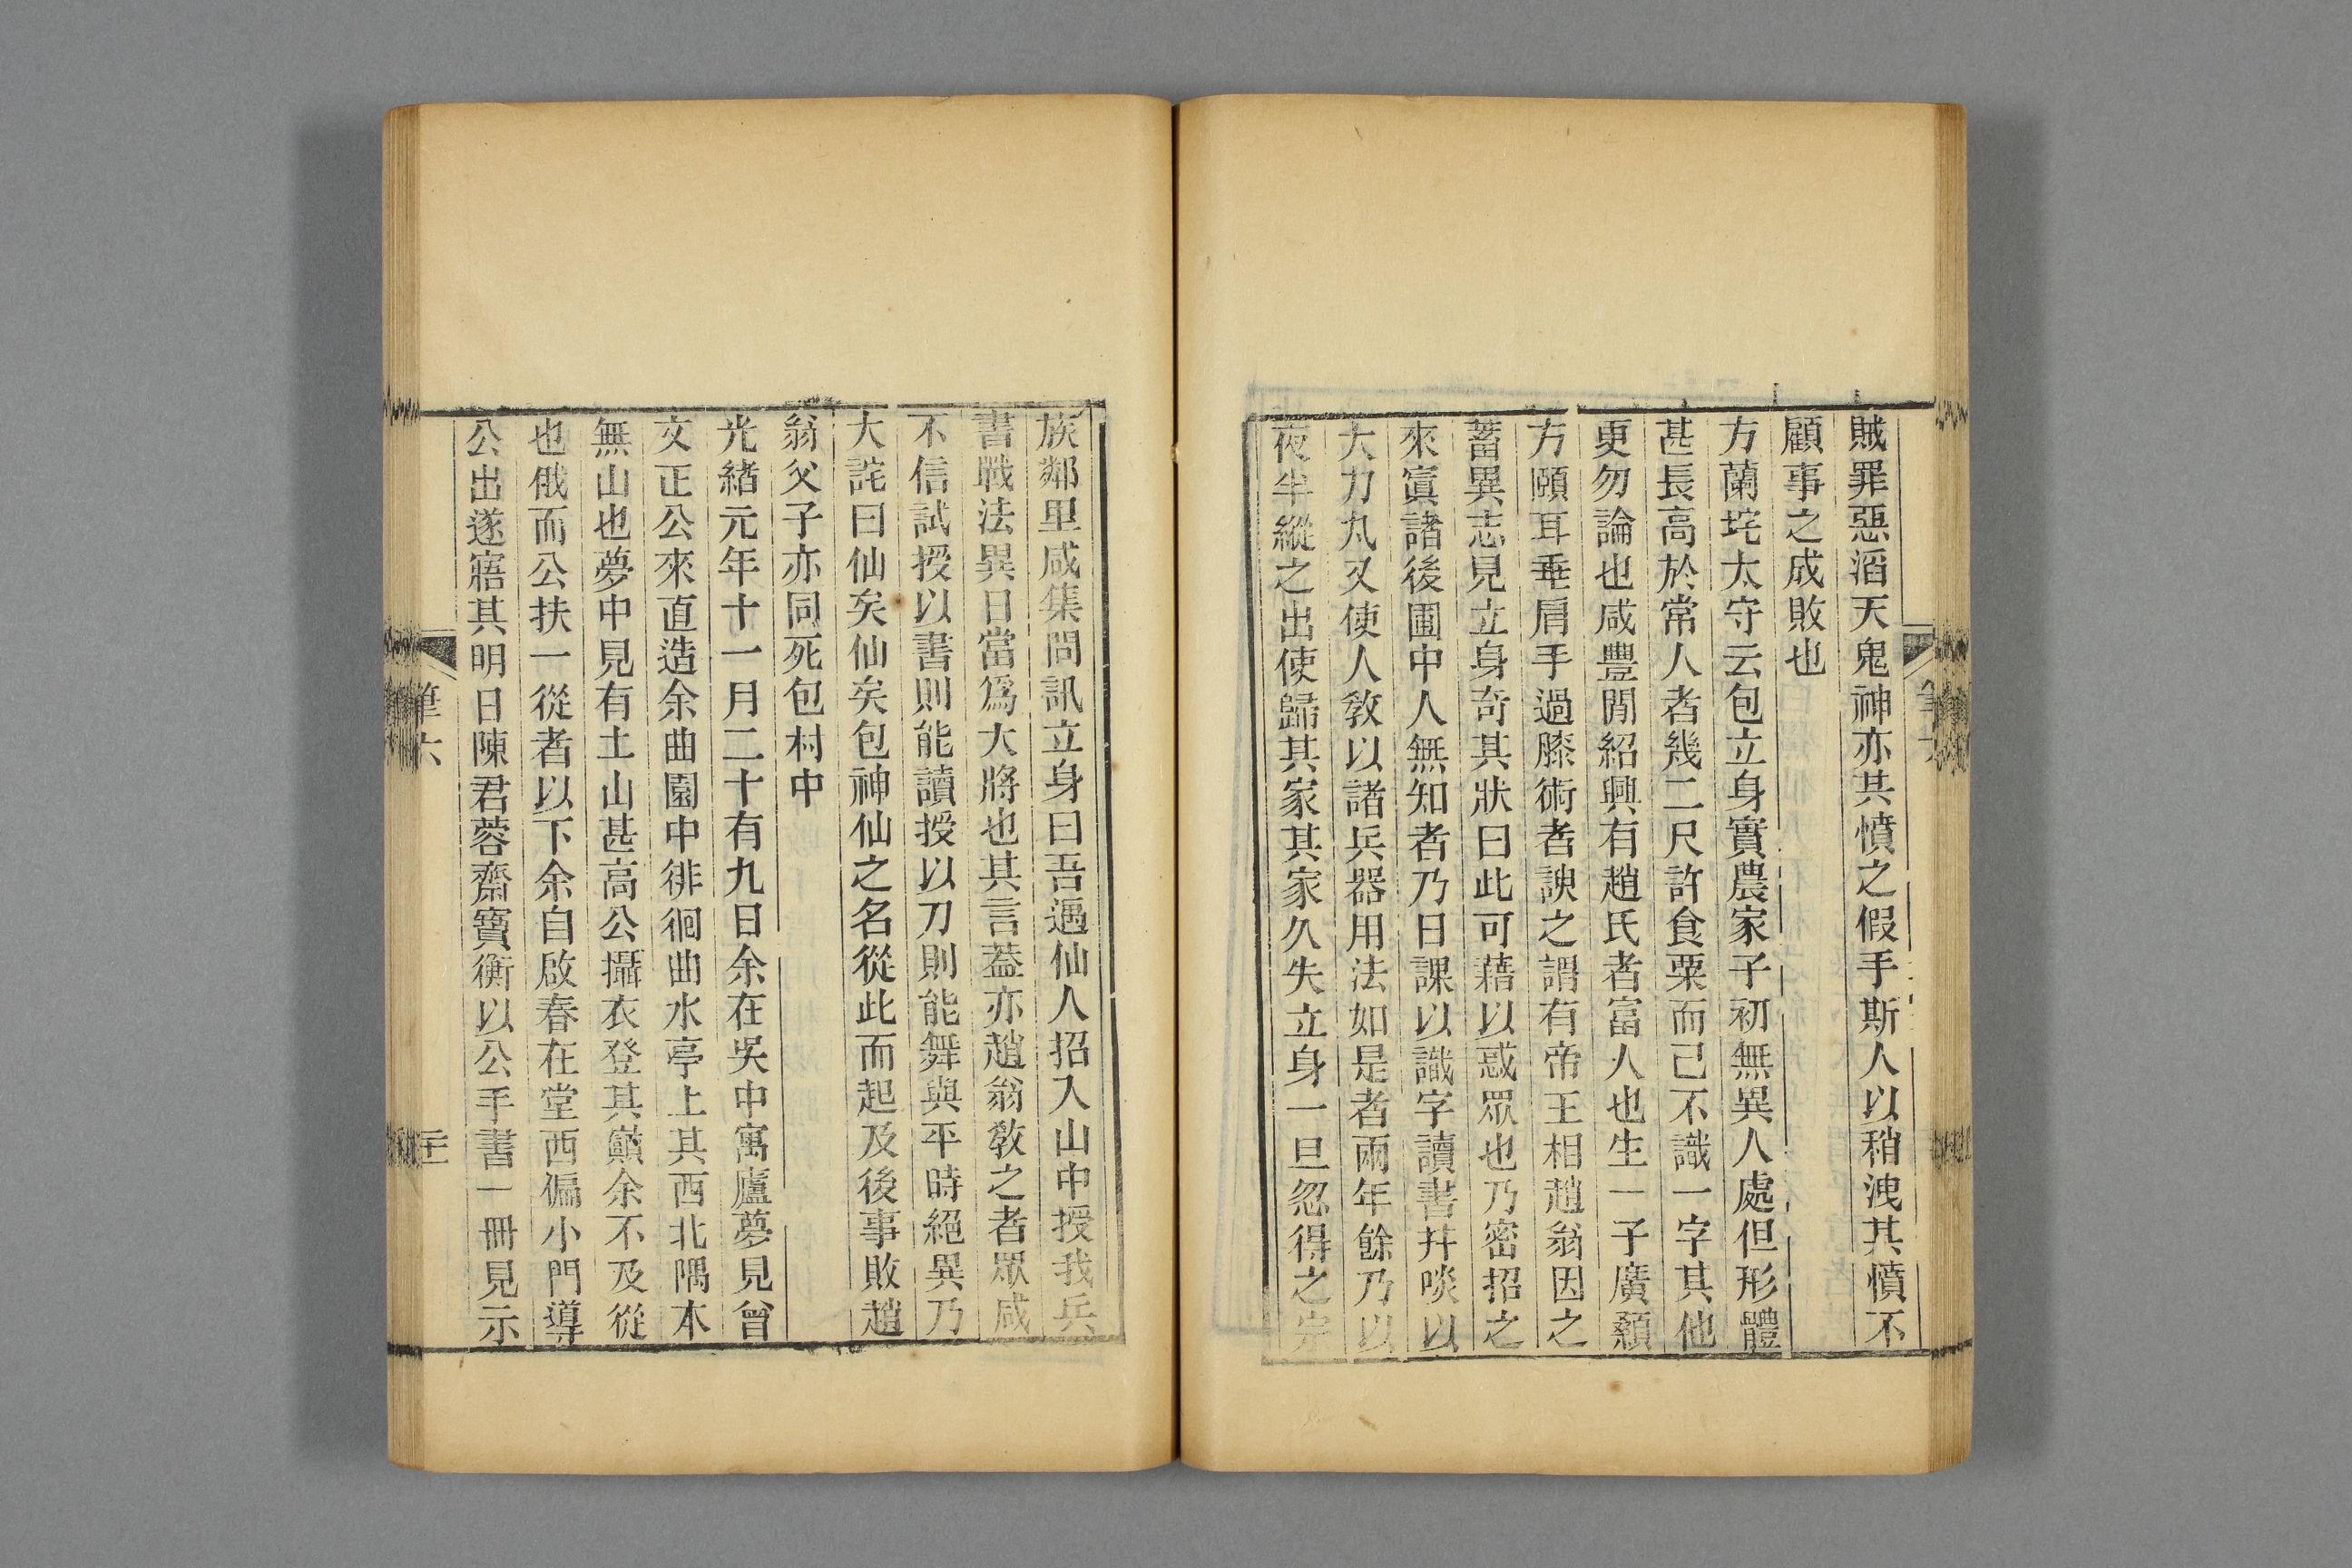 賊罪惡滔天鬼神亦其憤之假手斯人以稍洩其憤不
顧事之成敗也
方蘭垞太守云包立身實農家子初無異人處但形體
甚長高於常人者幾二尺許食粟而己不識一字其他
更勿論也咸豐閒紹興有趙氏者富人也生一子廣顙
方頤耳垂肩手過膝術者諛之謂有帝王相趙翁因之
蓄異志見立身奇其狀曰此可藉以惑眾也乃密招之
來寘諸後圃中人無知者乃日課以識字讀書幷啖以
大力丸又使人敎以諸兵器用法如是者兩年餘乃以
夜半縱之出使歸其家其家久失立身一旦忽得之宗
族鄰里咸集問訊立身曰吾遇仙人招入山中授我兵
書戰法異日當爲大將也其言葢亦趙翁敎之者眾咸
不信試授以書則能讀授以刀則能舞與平時絕異乃
大詫曰仙矣仙矣包神仙之名從此而起及後事敗趙
翁父子亦同死包村中
光緒元年十一月二十有九日余在吳中寓廬夢見曾
文正公來直造余曲園中徘徊曲水亭上其西北隅本
無山也夢中見有土山甚高公攝衣登其巔余不及從
也俄而公扶一從者以下余自啟春在堂西偏小門導
公出遂寤其明日陳君蓉齋寶衡以公手書一冊見示
筆六